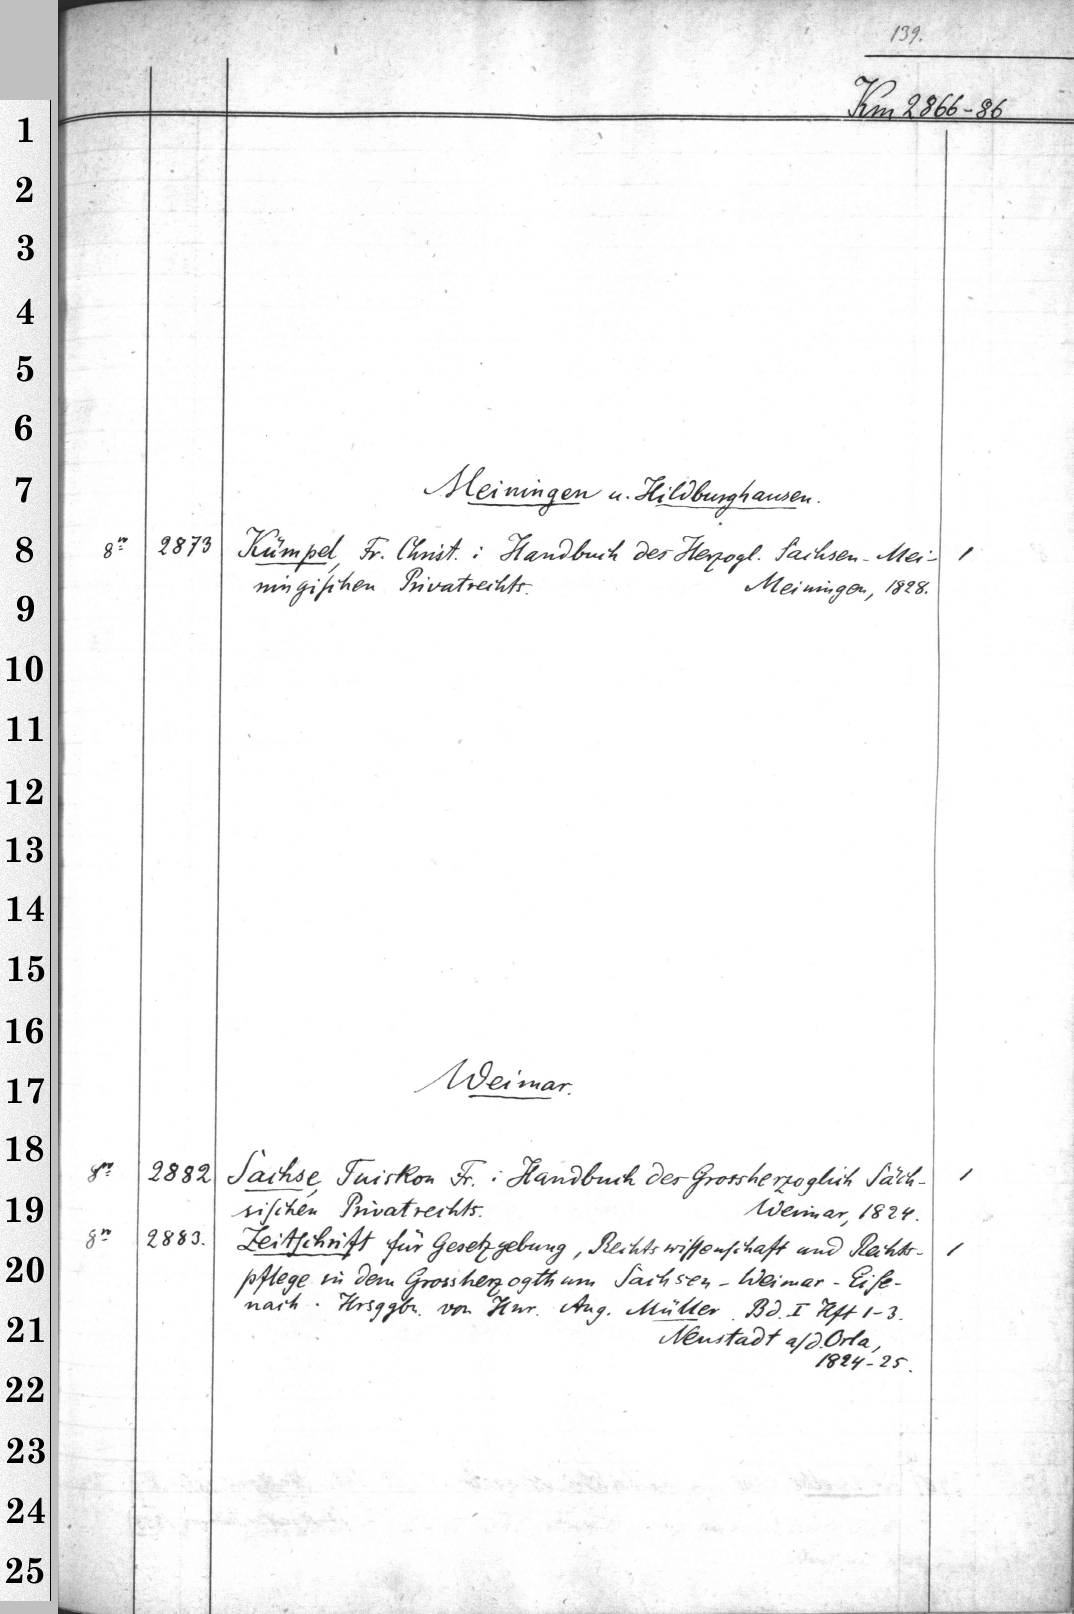 139.
Km 2866-86
1
2
3
4
5
6
7
Meiningen u. Hildburghausen.
8
8º 2873 Kümpel, Fr. Christ.: Handbuch des Herzogl. Sachsen-Mei- 1
ningischen Privatrechts. Meiningen, 1828.
9
10
11
12
13
14
15
16
17
Weimar.
18
8º 2882 Sachse, Tuiskon Fr.: Handbuch des Grossherzoglich Säch- 1
19
sischen Privatrechts. Weimar, 1824.
8º 2883. Zeitschrift für Gesetzgebung, Rechtswissenschaft und Rechts- 1
20
pflege in dem Grossherzogthum Sachsen-Weimar-Eise-
nach. Hrsggbn. von Hnr. Aug. Müller. Bd. I Hft 1-3.
21
Neustadt a/d. Orla,
1824-25.
22
23
24
25